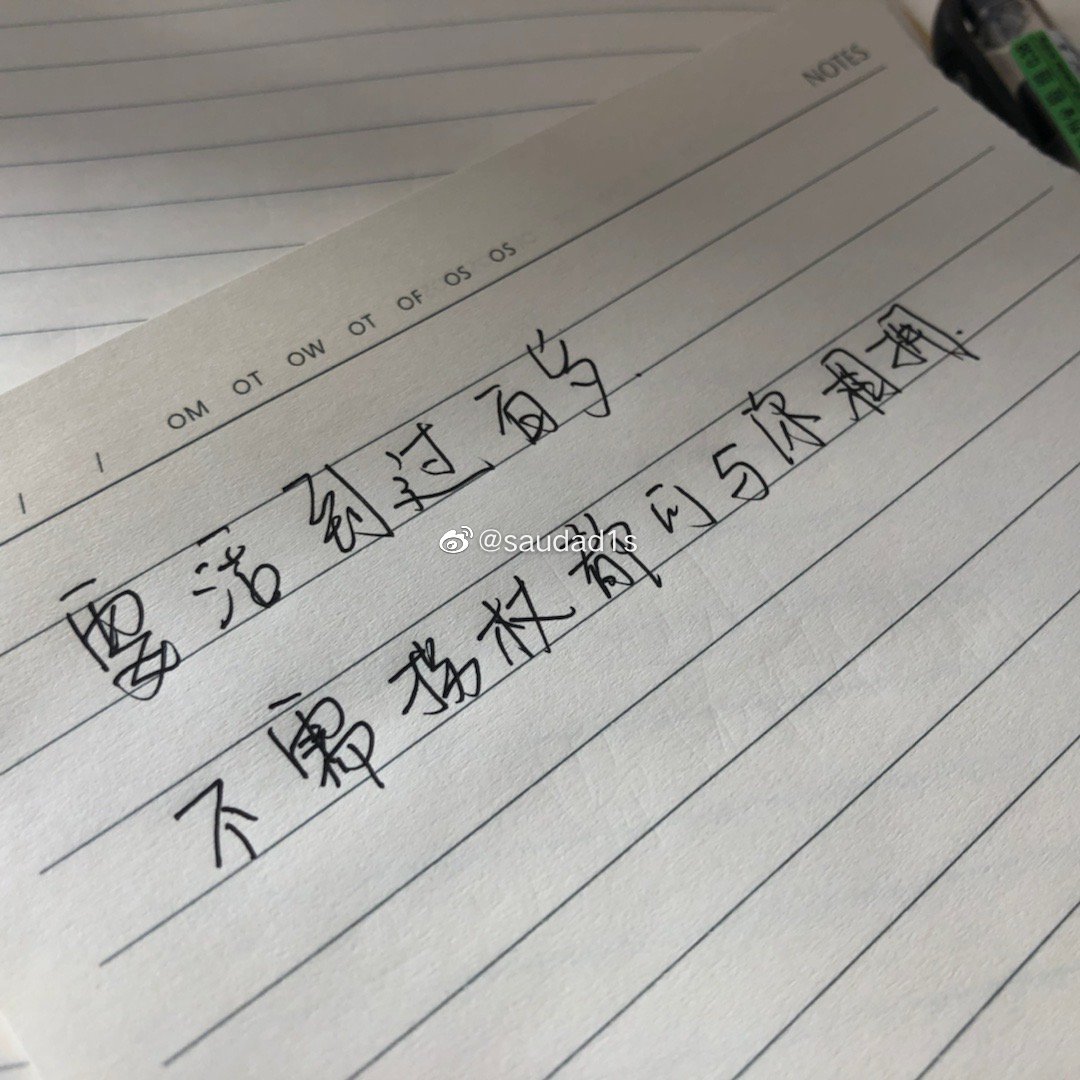 NOTES
OM OT OW OT OF OS OS
要活到过百岁.
不需拐杖都可与你相拥.
@saudad1s